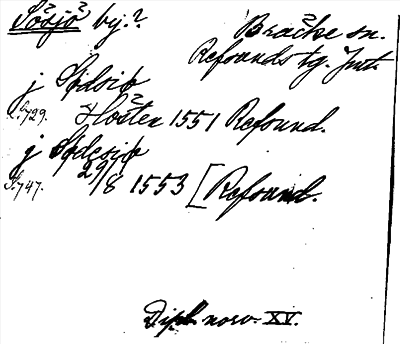 Sösjö by.?
Bräcke sn.
Refsunds tg. Jmt.
j Södsiø
S. 729. Hösten 1551 Refsund.
j Sødesiø
S. 747. 29/8 1553 [Refsund.
Dipl. norv. XV.